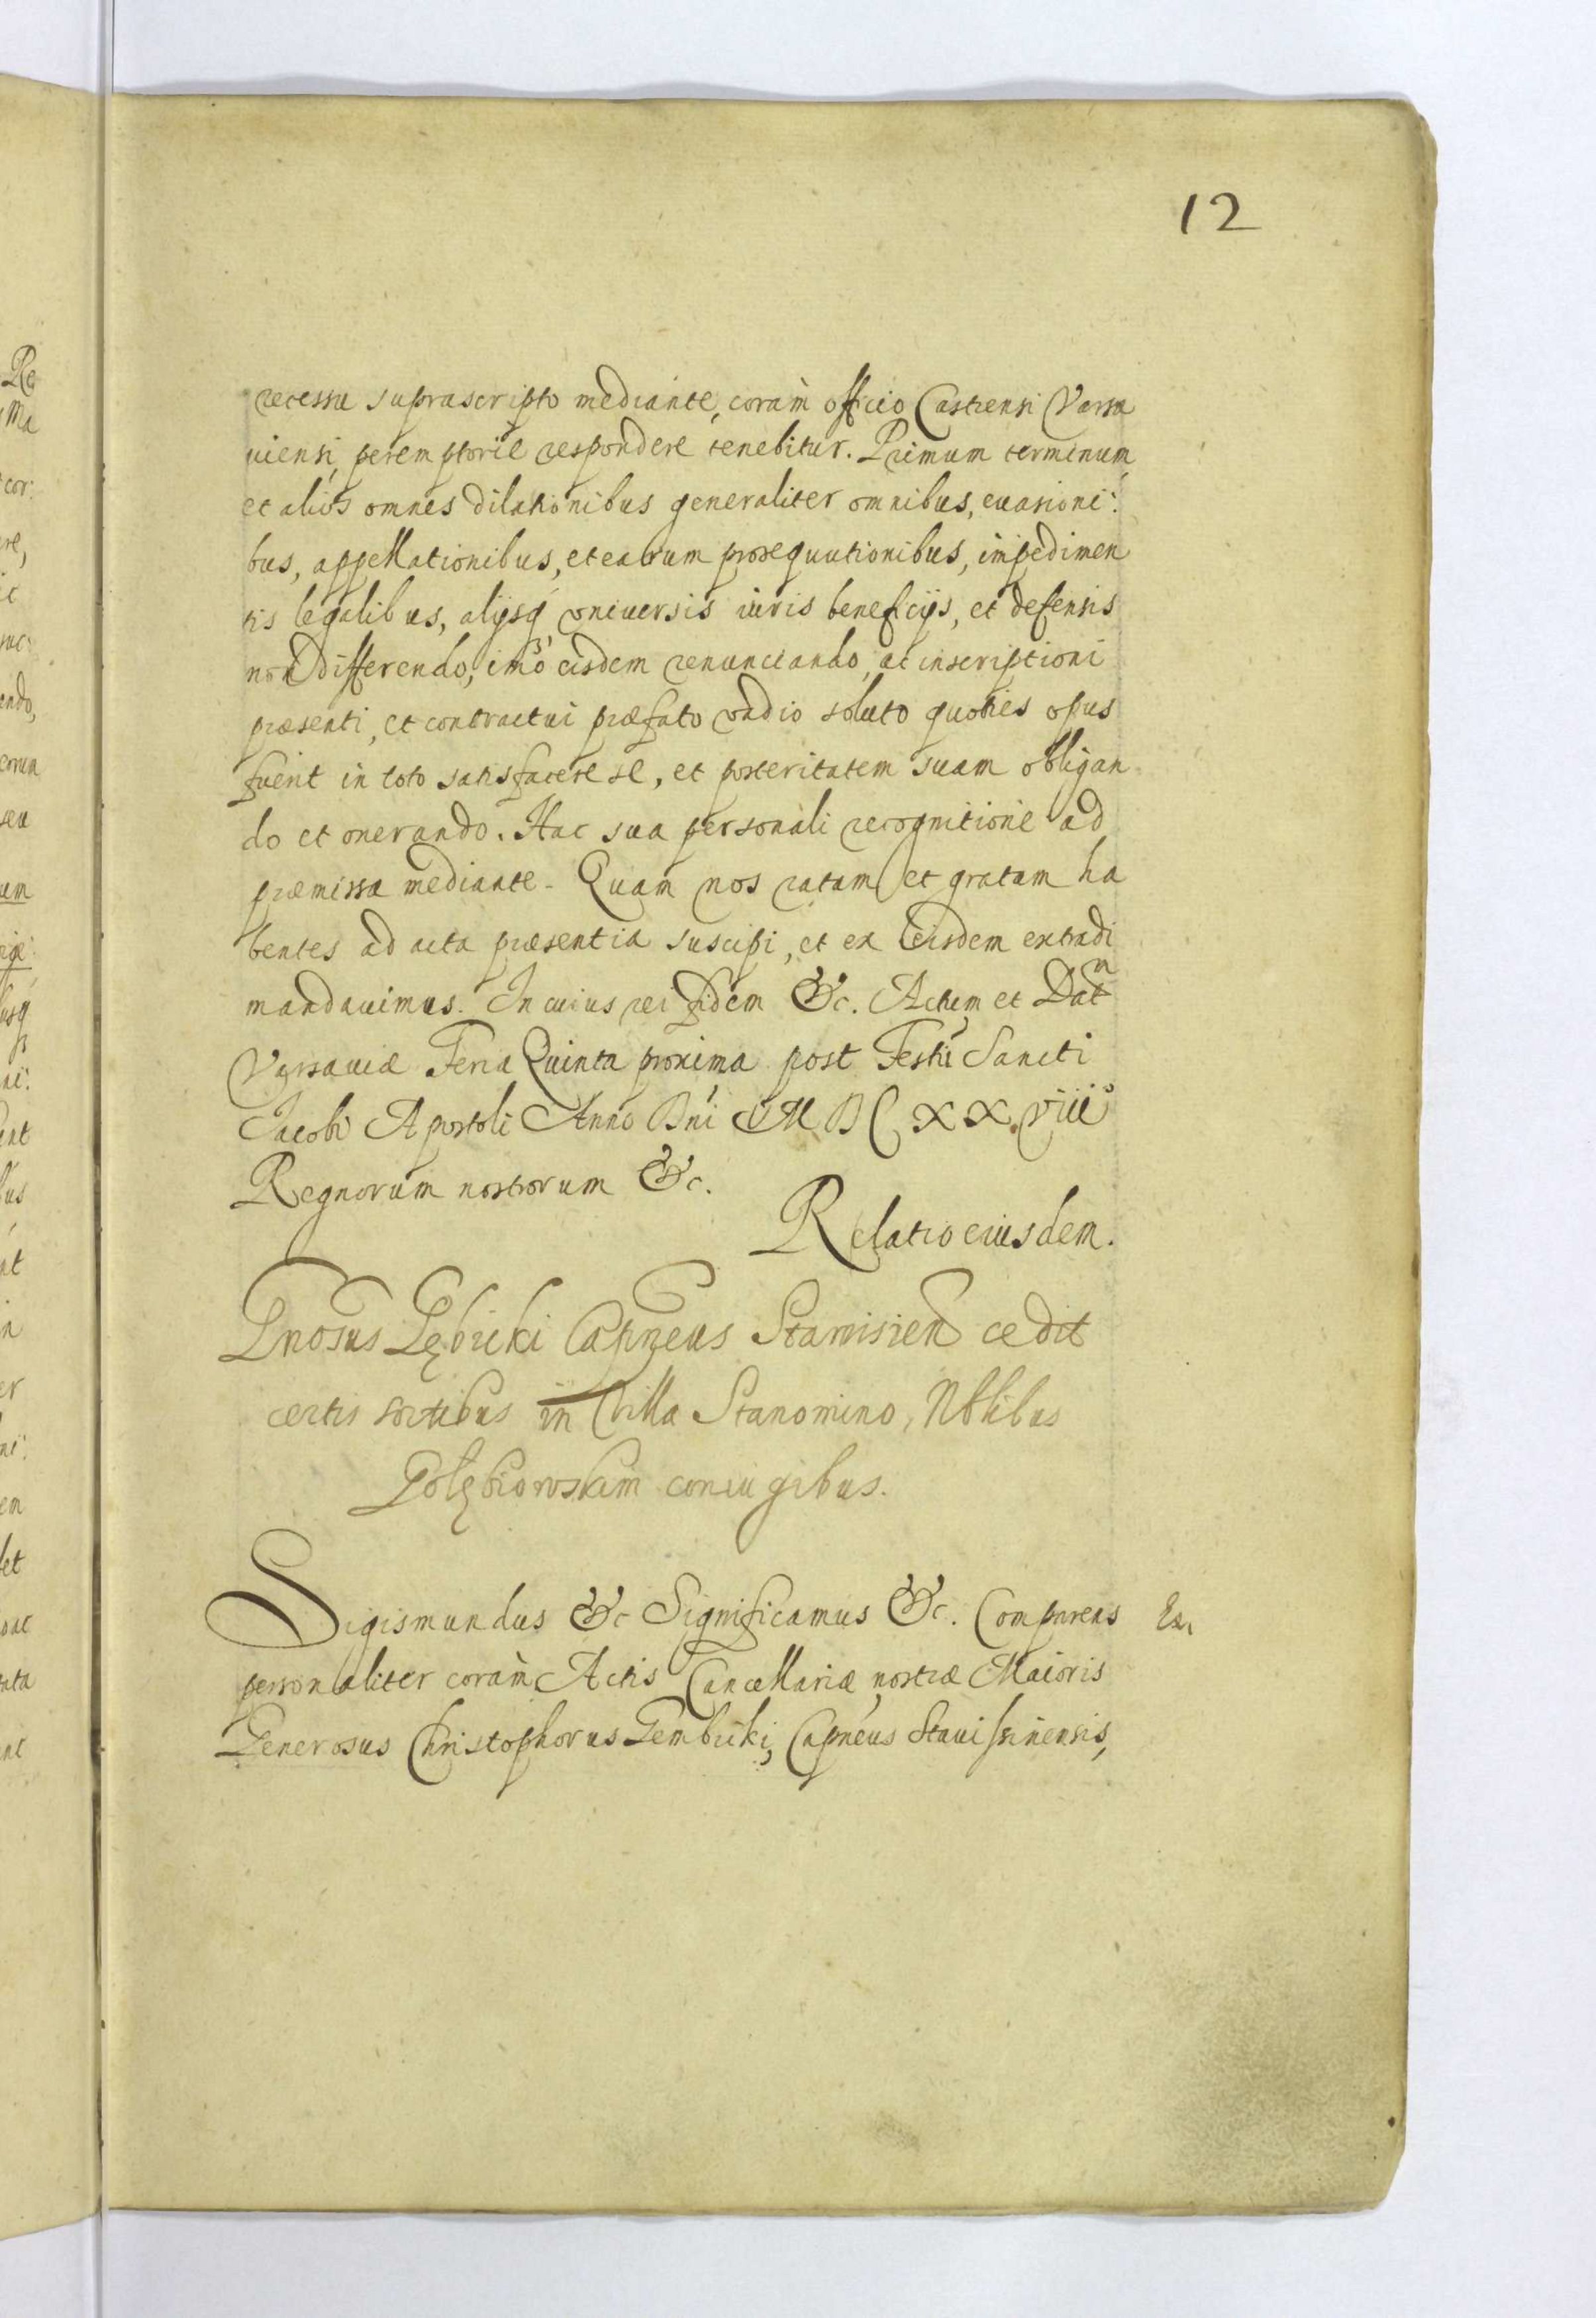 12
recessu suprascripto mediante, coram officio Castrensi Varsa
uiensi, peremptorie respondere tenebitur. Primum terminum
et alios omnes dilationibus generaliter omnibus, euasioni:
bus, appellationibus, et earum prosequutionibus, impedimen
tis legalibus, alijsq vniuersis iuris beneficijs, et defensis
non differendo, imo eisdem renunciando, ac inscriptioni
præsenti, et contractui præfato vadio soluto quoties opus
fuerit in toto satisfacere se, et posteritatem suam obligan
do et onerando. Hac sua personali recognitione ad
præmissa mediante. Quam nos ratam et gratam ha
bentes ad acta præsentia suscipi, et ex eisdem extradi
mandauimus. In cuius rei fidem &c. Actum et Datn
Varsauiæ Feria Quinta proxima post Festu Sancti
Jacobi Apostoli Anno Dni M D C X X viii
Regnorum nostrorum &c.
Relatio eiusdem.
Gnosus Gębicki Capneus Stawisien cedit
certis sortibus in Villa Stanomino, Nblibus
Gołębiowskim coniugibus.
Sigismundus &c Significamus &c. Comparens
Ex.
personaliter coram Actis Cancellariæ nostræ Maioris
Generosus Christophorus Gembicki, Capneus Stauissinensis,
Re
Ma
cor:
ere,
ic
endo,
seu
um
usq
ni:
ent
bus
at
er
ni:
em
let
ata